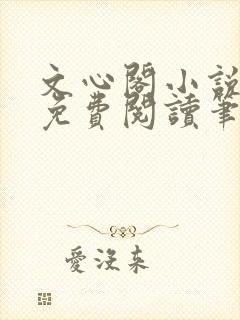 文心閣小說
免費閱讀筆
愛沒來